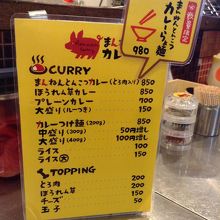 まんねんとんこつ
カレーらぁ麺
980
数量限定
まんねんとんこつ
カレー
850
CURRY
まんねんとんこつカレー(とろ肉入り) 850
ほうれん草カレー 850
プレーンカレー 700
大盛り(ルーごと) 150
カレーつけ麺(200g) 850
中盛り(300g) 50円増し
大盛り(400g) 100円増し
ライス 100
ライス大 150
TOPPING
とろ肉 200
ほうれん草 200
チーズ 50
玉子